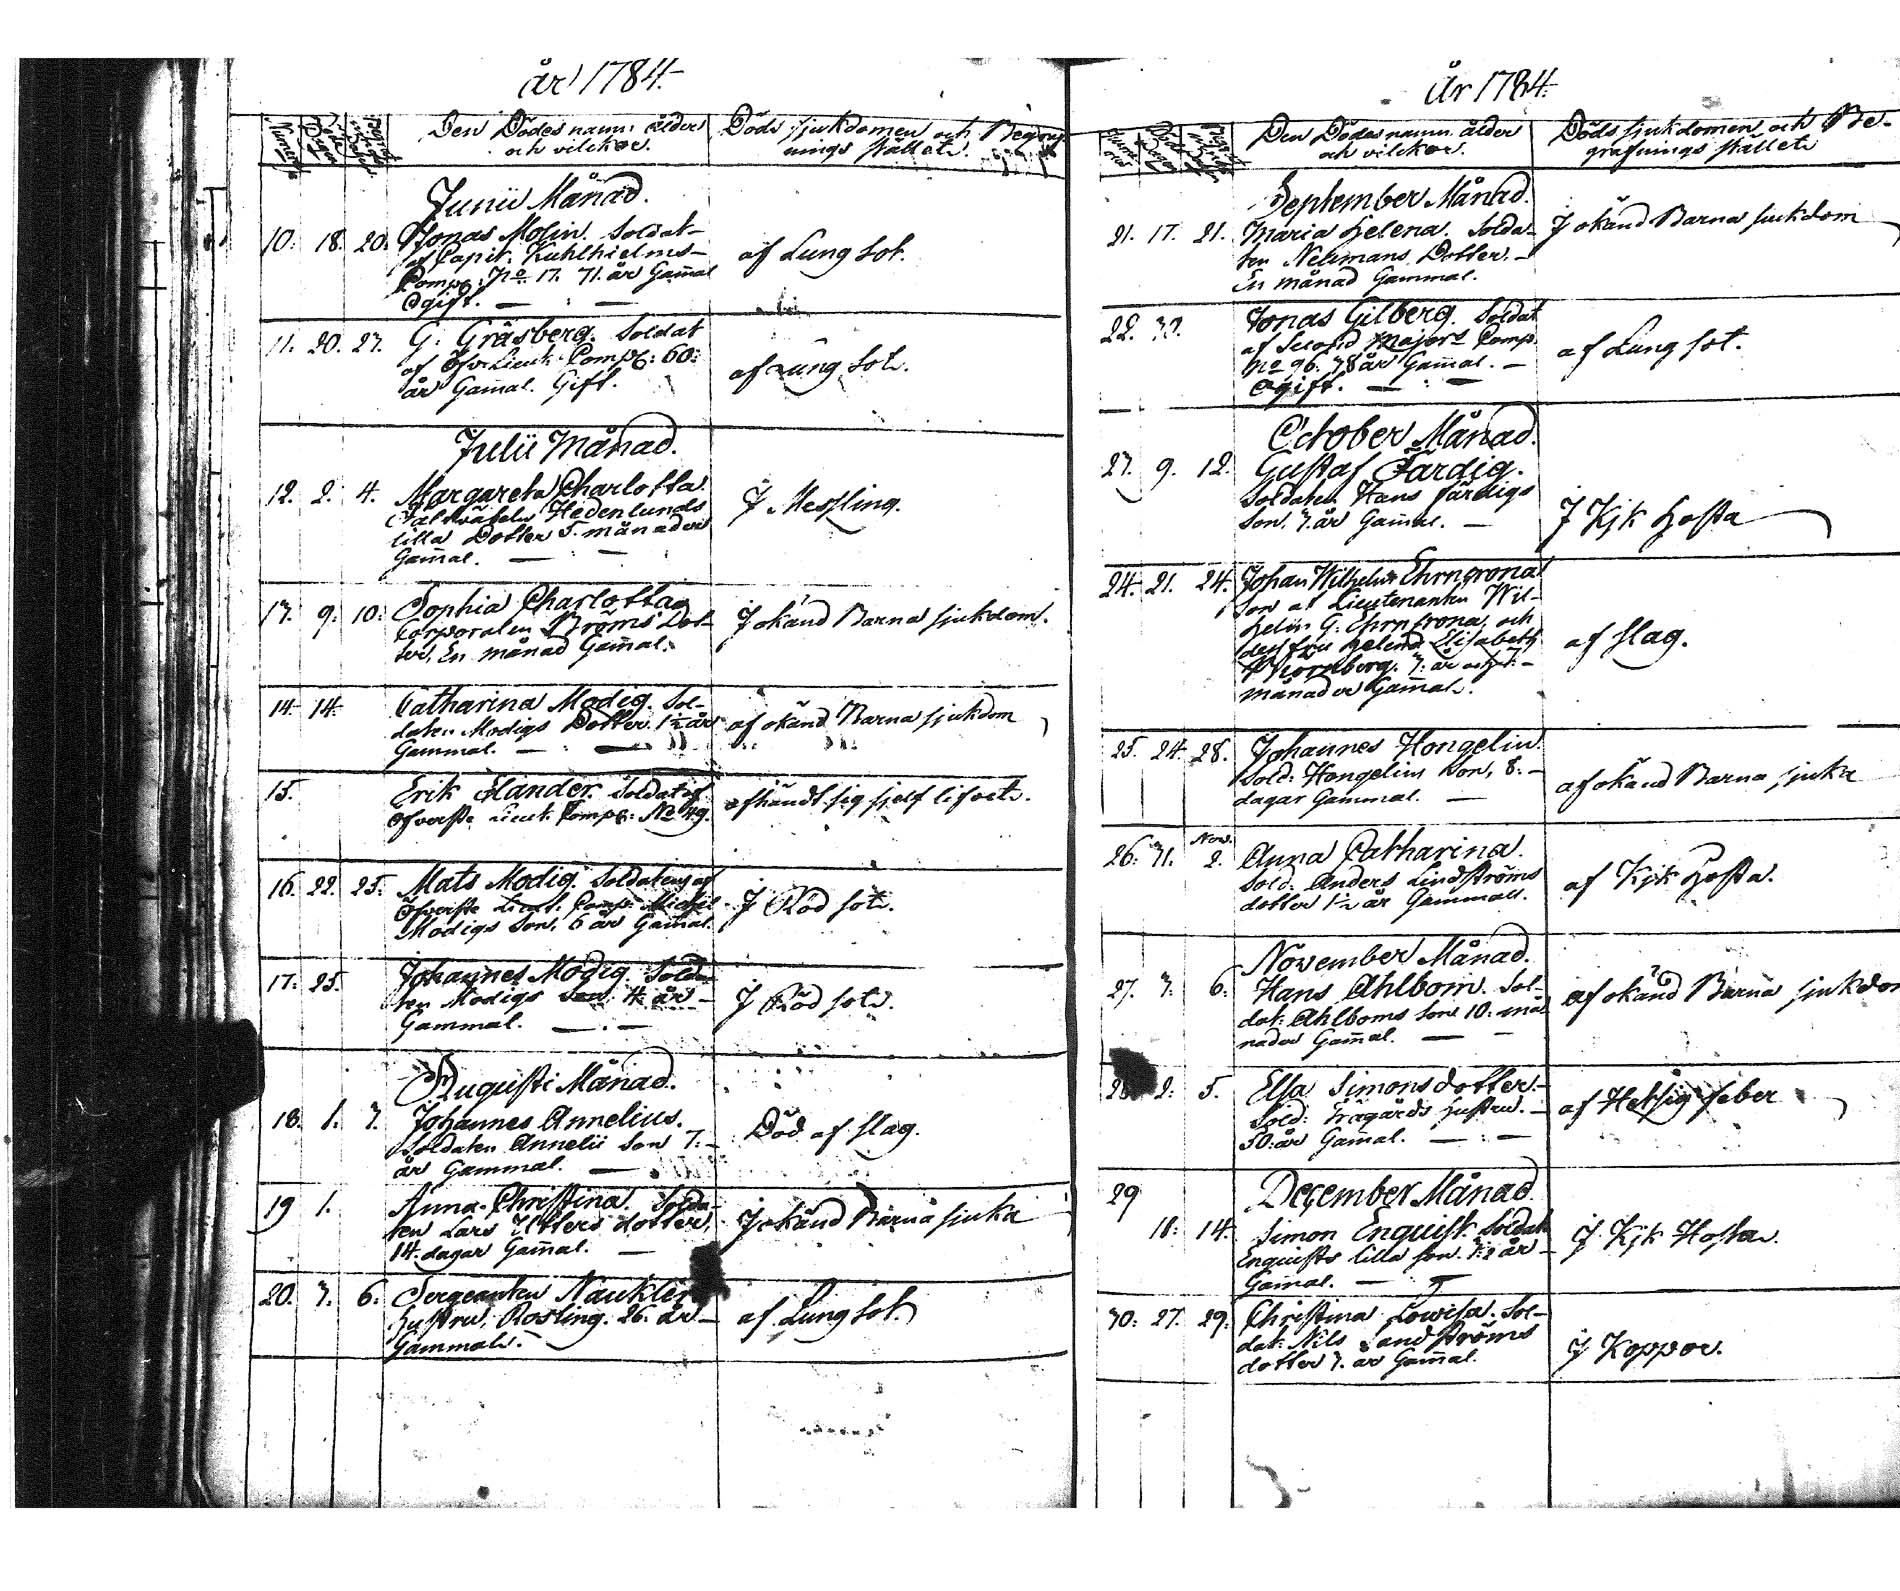 år 1784.
Numero
Den Dödes namn ålder
och vilckor.
Döds sjukdomen och Begraf-
nings stället.
Junii Månad.
10. 18. 20. Jonas Molin. Soldat
af Capit. Kuhlhielms
Comp: No 17. 71. år Gam̄al
Ogift.
af Lungsot.
11. 20. 27. G: Gräsberg. Soldat
af Öfv: Lieut: Comp: 60:
år Gam̄al. Gift.
af Lungsot.
Julii Månad.
12. 2. 4. Margareta Charlotta
Hedenlunds
lilla Dotter 5. månader
Gam̄al.
J Messling.
13. 9. 10: Sophia Charlotta
Corporalen Broms Dot-
ter, En månad Gam̄al.
J okänd Barna sjukdom.
14. 14. Catharina Modig. Sol-
daten Modigs Dotter 1½ år
Gammal.
af okänd Barna sjukdom
15. Erik Elander. Soldat af
Öfverste Lieut: Comp: No 49.
afhändt sig sjelf lifvet.
16. 22. 25. Mats Modig. Soldatens af
Öfverste Lieut. Comp: Michel
Modigs Son, 6 år Gam̄al.
J Röd sot.
17. 25. Johannes Modig Solda-
ten Modigs Son 4. år
Gammal.
J Röd sot.
Augusti Månad.
18. 1. 3. Johannes Annelius.
Soldaten Annelii Son 7.
år Gammal.
Död af slag.
19 1. Anna Christina. Solda-
ten Lars Utters dotter,
14. dagar Gam̄al.
J okänd Barna sjuka
20. 3. 6. Sergeanten Naukler
hustru, Rosling. 26. år
Gammal.
af Lungsot.
År 1784.
Den Dödes namn ålder
och vilckor.
Döds sjukdomen och Be-
grafnings stället
September Månad.
21. 17. 21. Maria Helena. Solda-
ten Nelimans Dotter.
En månad Gammal.
J okänd Barna sjukdom
22. 30. Jonas Gilberg. Soldat
af Second Majors Comp
No 96. 38 år Gam̄al.
Ogift.
af Lungsot.
October Månad.
23. 9. 12. Gustaf Färdig.
Soldaten Hans Färdigs
Son, 3. år Gam̄al.
J Kjk Hosta
24. 21. 24. Johan Wilhelm Ehrncrona
Son af Lieutenanten Wil-
helm G: Ehrncrona, och
des fru Helena Elisabeth
3. år och 7.
månader Gam̄al.
af slag.
25. 24. 28. Johannes Hongelin.
Sold: Hongelins Son, 8.
dagar Gammal.
af okänd Barna sjuka
26. 31. Nov. 2. Anna Catharina.
Sold. Anders Lindströms
dotter 1½ år Gammal.
af Kjk Hosta.
November Månad.
27. 3. 6. Hans Ahlbom. Sol-
dat: Ahlboms Son 10. må-
nader Gam̄al.
af okänd Barna sjukdom
28 2. 5. Elsa Simons dotter.
Sold: Trägårds hustru.
50. år Gam̄al.
af Hetsig feber
29 December Månad.
18: 14. Simon Enquist. Soldat
Enquists lilla son. 3½ år
Gam̄al.
J Kjk Hosta.
30. 27. 29. Christina Lowisa. Sol-
dat: Nils Sandströms
dotter 3. år Gam̄al.
J Koppor.